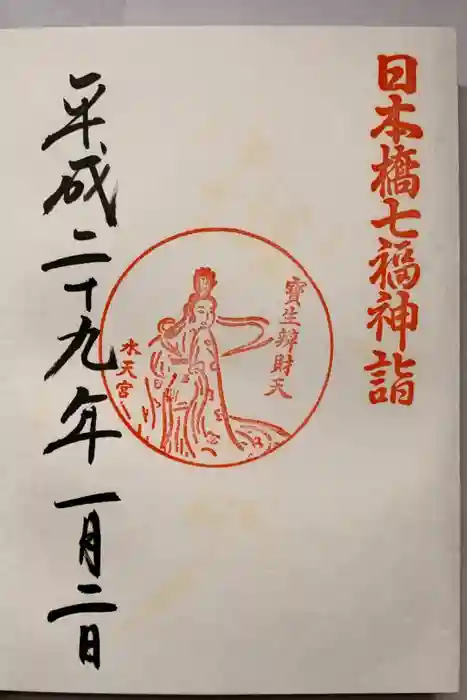 日本橋七福神詣
寶生辨財天
水天宮
平成二十九年一月二日